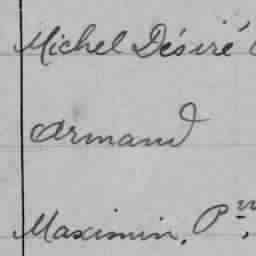 Michel Désiré
Armand
Maximin, Pre